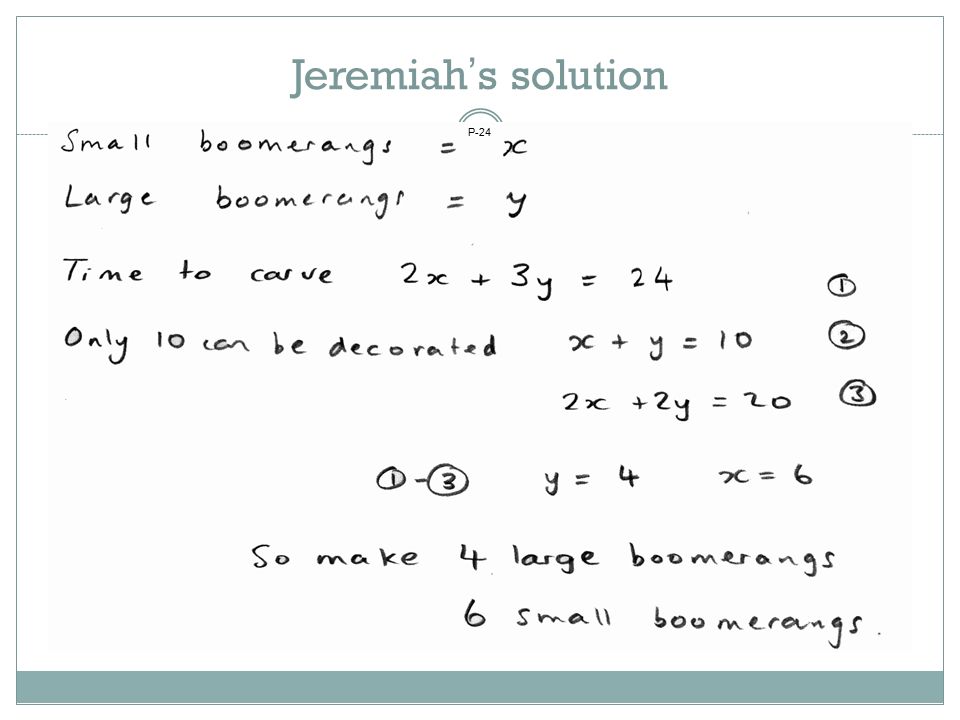 Jeremiah’s solution
P-24
Small boomerangs = x
Large boomerangs = y
Time to carve 2x + 3y = 24 ①
Only 10 can be decorated x + y = 10 ②
2x + 2y = 20 ③
① - ③ y = 4 x = 6
So make 4 large boomerangs
6 small boomerangs.